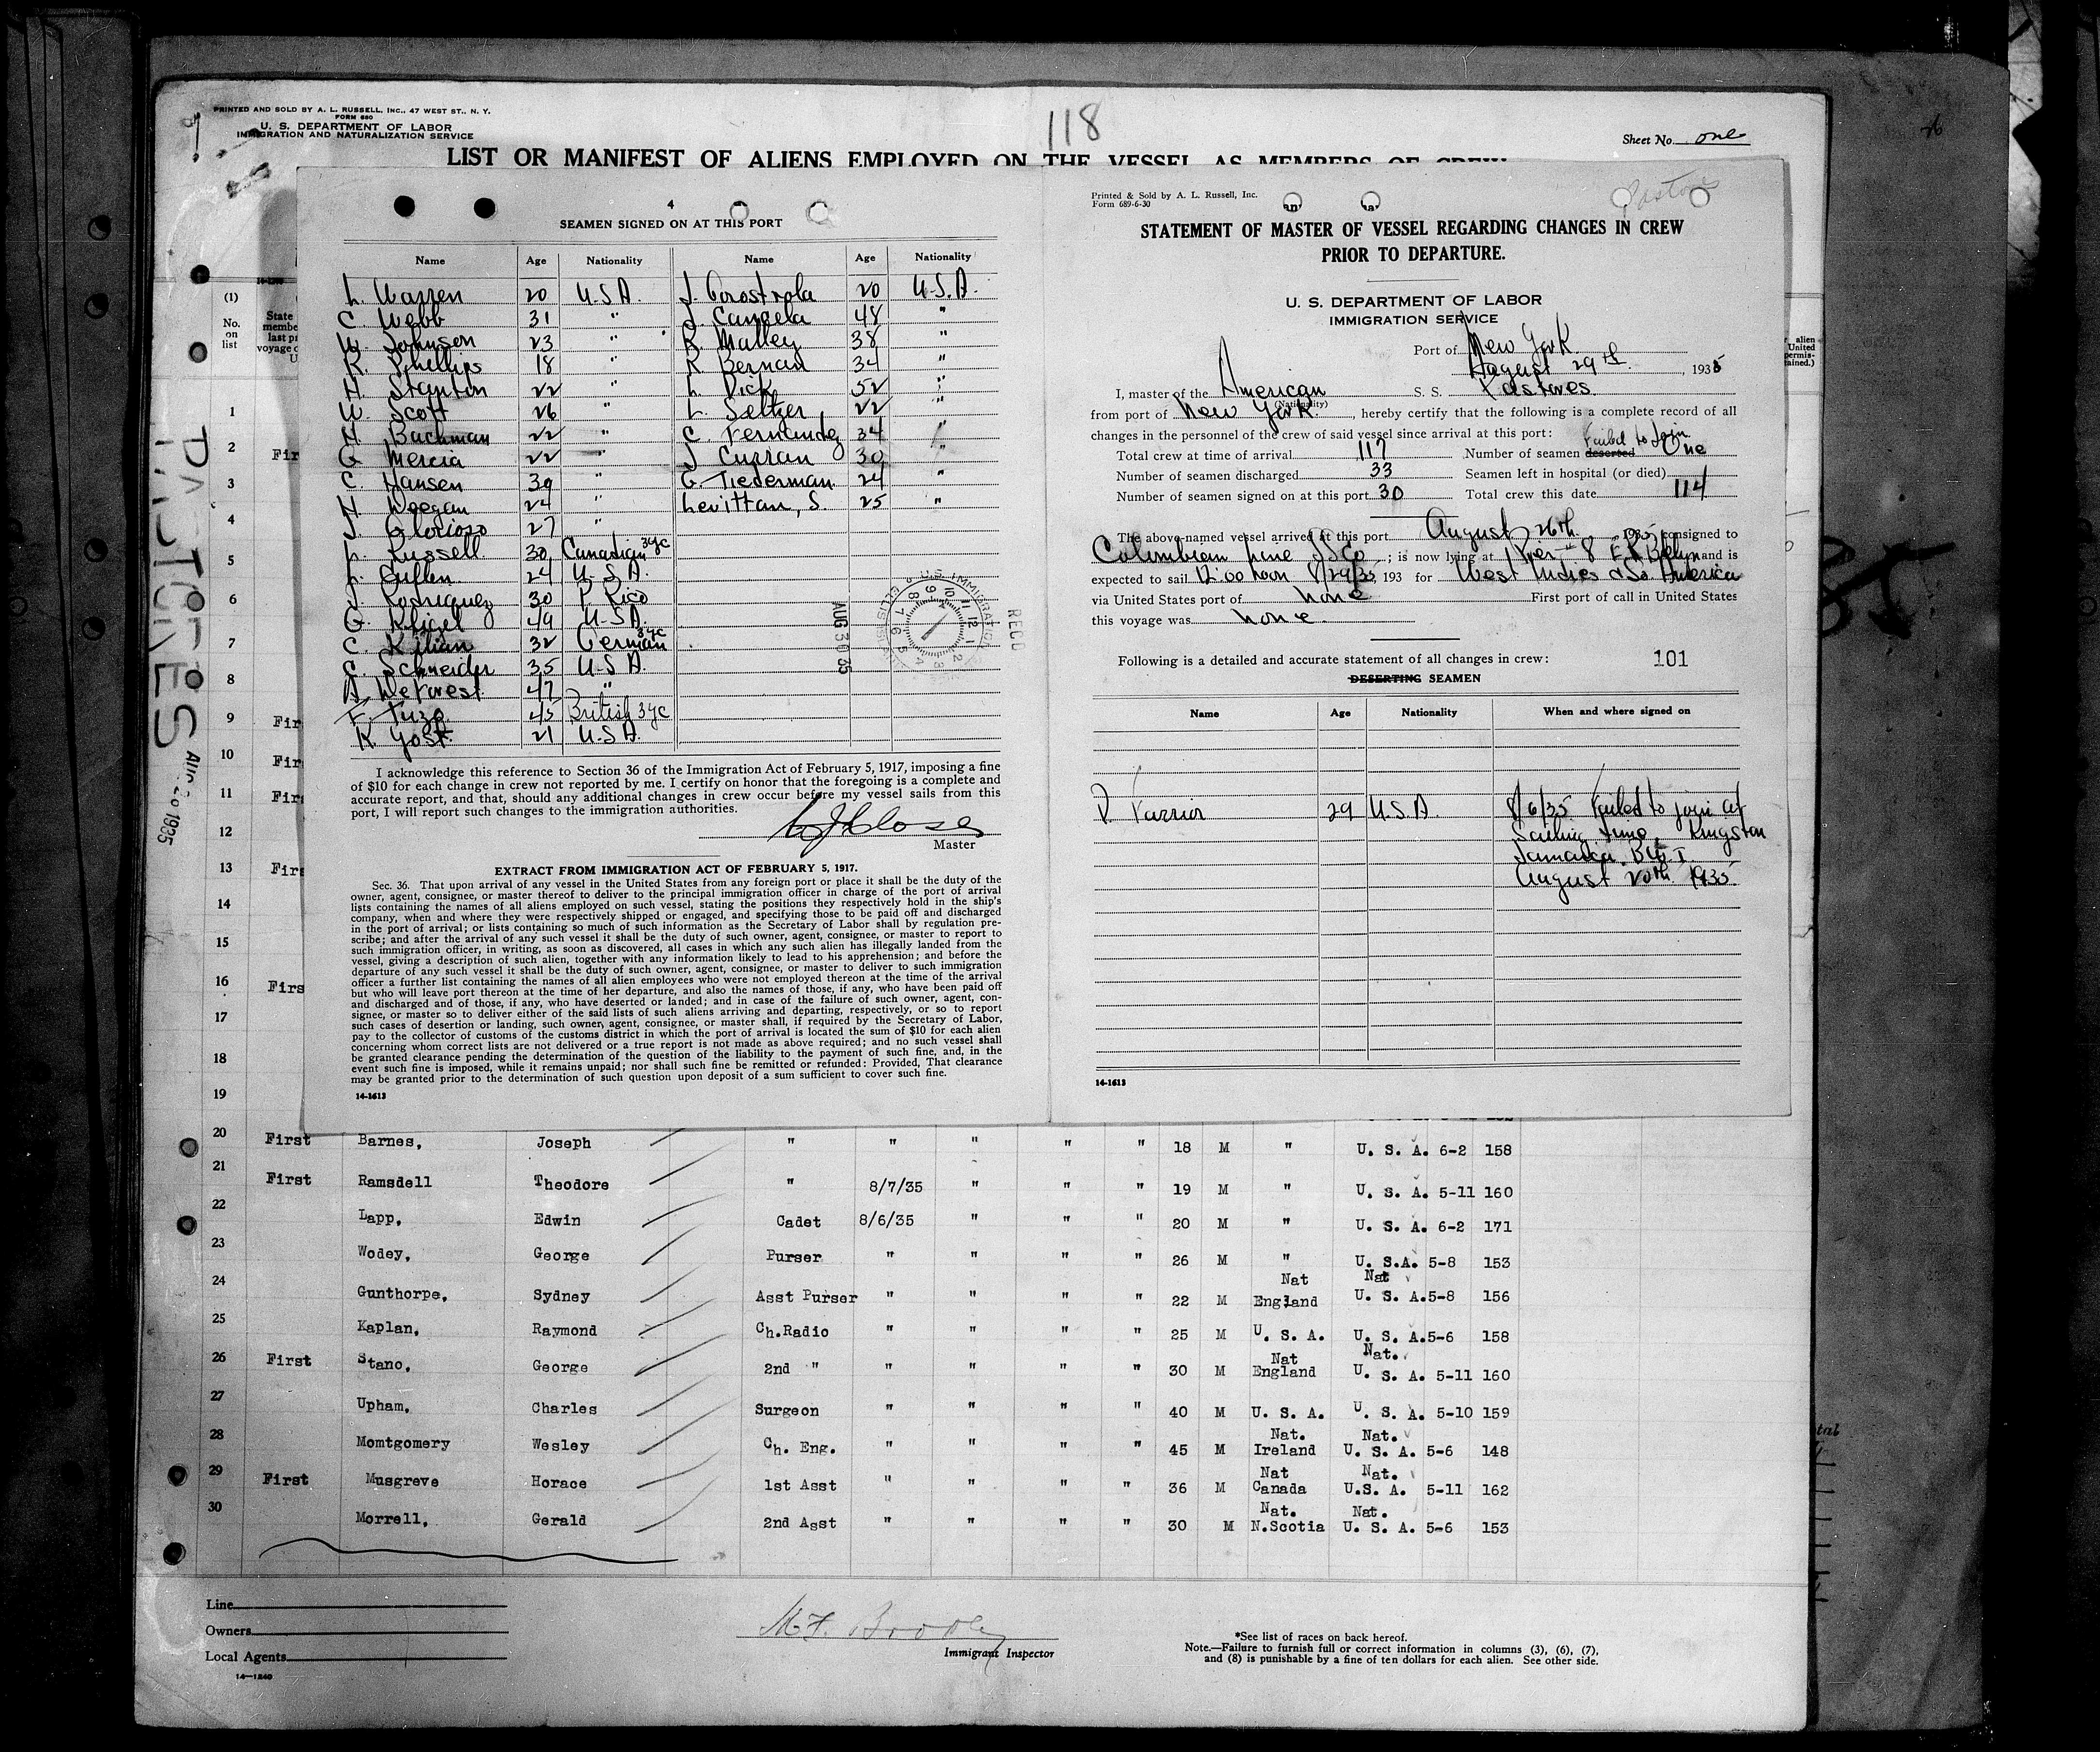 PRINTED AND SOLD BY A. L. RUSSELL, INC., 47 WEST ST., N. Y.
FORM 680
U. S. DEPARTMENT OF LABOR
IMMIGRATION AND NATURALIZATION SERVICE
118
Sheet No. one
LIST OR MANIFEST OF ALIENS EMPLOYED ON THE VESSEL AS MEMBERS OF CREW
4
SEAMEN SIGNED ON AT THIS PORT
Name Age Nationality Name Age Nationality
L. Warren 20 U.S.A. J. 20 U.S.A.
C. Webb 31 " J. Cancela 48 "
W. Johnson 23 " R. Malley 38 "
R. Phillips 18 " R. Bernan 34 "
H. Stanton 22 " L. Dick 52 "
W. Scott 26 " L. Seltzer 22 "
H. Bachman 22 " C. Fernandez 34 "
G. Mercia 22 " J. Curran 30 "
C. Hansen 39 " G. Tiederman 24 "
H. Deegan 24 " Levittan, S. 25 "
J. Glorioso 27 "
L. Russell 30 Canadian 3yc
L. 24 U.S.A.
J. Rodriguez 30 P. Rico
G. Kligel 49 U.S.A.
C. Kilian 32 German 3yc
C. Schneider 35 U.S.A.
A. DeForest 47 "
F. Tuzo 45 British 3yc
R. Yost 21 U.S.A.
AUG 30 35
U.S. IMMIGRATION
REC'D
I acknowledge this reference to Section 36 of the Immigration Act of February 5, 1917, imposing a fine
of $10 for each change in crew not reported by me. I certify on honor that the foregoing is a complete and
accurate report, and that, should any additional changes in crew occur before my vessel sails from this
port, I will report such changes to the immigration authorities.
Master
EXTRACT FROM IMMIGRATION ACT OF FEBRUARY 5, 1917.
Sec. 36. That upon arrival of any vessel in the United States from any foreign port or place it shall be the duty of the
owner, agent, consignee, or master thereof to deliver to the principal immigration officer in charge of the port of arrival
lists containing the names of all aliens employed on such vessel, stating the positions they respectively hold in the ship's
company, when and where they were respectively shipped or engaged, and specifying those to be paid off and discharged
in the port of arrival; or lists containing so much of such information as the Secretary of Labor shall by regulation pre-
scribe; and after the arrival of any such vessel it shall be the duty of such owner, agent, consignee, or master to report to
such immigration officer, in writing, as soon as discovered, all cases in which any such alien has illegally landed from the
vessel, giving a description of such alien, together with any information likely to lead to his apprehension; and before the
departure of any such vessel it shall be the duty of such owner, agent, consignee, or master to deliver to such immigration
officer a further list containing the names of all alien employees who were not employed thereon at the time of the arrival
but who will leave port thereon at the time of her departure, and also the names of those, if any, who have been paid off
and discharged and of those, if any, who have deserted or landed; and in case of the failure of such owner, agent, con-
signee, or master so to deliver either of the said lists of such aliens arriving and departing, respectively, or so to report
such cases of desertion or landing, such owner, agent, consignee, or master shall, if required by the Secretary of Labor,
pay to the collector of customs of the customs district in which the port of arrival is located the sum of $10 for each alien
concerning whom correct lists are not delivered or a true report is not made as above required; and no such vessel shall
be granted clearance pending the determination of the question of the liability to the payment of such fine, and, in the
event such fine is imposed, while it remains unpaid; nor shall such fine be remitted or refunded: Provided, That clearance
may be granted prior to the determination of such question upon deposit of a sum sufficient to cover such fine.
14-1613
Printed & Sold by A. L. Russell, Inc.
Form 689-6-30
Pastores
STATEMENT OF MASTER OF VESSEL REGARDING CHANGES IN CREW
PRIOR TO DEPARTURE.
U. S. DEPARTMENT OF LABOR
IMMIGRATION SERVICE
Port of New York
August 29th, 1935
I, master of the American S. S. Pastores
(Nationality)
from port of New York, hereby certify that the following is a complete record of all
changes in the personnel of the crew of said vessel since arrival at this port:
Total crew at time of arrival 117 Number of seamen deserted Failed to Join One
Number of seamen discharged 33 Seamen left in hospital (or died)
Number of seamen signed on at this port 30 Total crew this date 114
The above-named vessel arrived at this port August 26th 1935, consigned to
Colombian Line SSCo; is now lying at Pier # 8 E.R. Bklyn and is
expected to sail 12:00 noon 8/29/35, 193 for West Indies & So. America
via United States port of None First port of call in United States
this voyage was none.
Following is a detailed and accurate statement of all changes in crew: 101
DESERTING SEAMEN
Name Age Nationality When and where signed on
29 U.S.A. 8/6/35 Failed to join at
Sailing time, Kingston
Jamaica. B.W.I.
August 20th 1935.
14-1613
PASTORES
AUG 26 1935
(1)
No.
on
list
State
1
2 Fir
3
4
5
6
7
8
9 Fir
10 Fir
11 Fir
12
13 Firs
14
15
16 Firs
17
18
19
20 First Barnes, Joseph " " " " " 18 M " U. S. A. 6-2 158
21 First Ramsdell Theodore " 8/7/35 " " " 19 M " U. S. A. 5-11 160
22 Lapp, Edwin Cadet 8/6/35 " " " 20 M " U. S. A. 6-2 171
23 Wodey, George Purser " " " " 26 M " U. S.A. 5-8 153
24 Gunthorpe, Sydney Asst Purser " " " " 22 M Nat England Nat U. S. A. 5-8 156
25 Kaplan, Raymond Ch.Radio " " " " 25 M U. S. A. U. S. A. 5-6 158
26 First Stano, George 2nd " " " " " 30 M Nat England Nat. U. S. A. 5-11 160
27 Upham, Charles Surgeon " " " " 40 M U. S. A. U. S. A. 5-10 159
28 Momtgomery Wesley Ch. Eng. " " " " 45 M Nat. Ireland Nat. U. S. A. 5-6 148
29 First Musgreve Horace 1st Asst " " " " 36 M Nat Canada Nat. U.S. A. 5-11 162
30 Morrell, Gerald 2nd Asst " " " " 30 M Nat. N.Scotia Nat. U. S. A. 5-6 153
Line
Owners
Local Agents
14-1240
Immigrant Inspector
*See list of races on back hereof.
Note.—Failure to furnish full or correct information in columns (3), (6), (7),
and (8) is punishable by a fine of ten dollars for each alien. See other side.